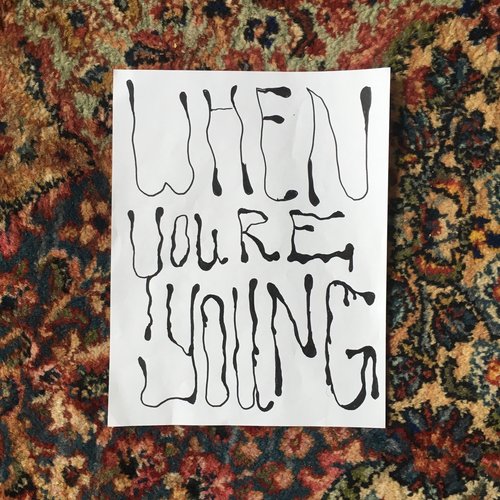 WHEN
YOU,RE
YOUNG